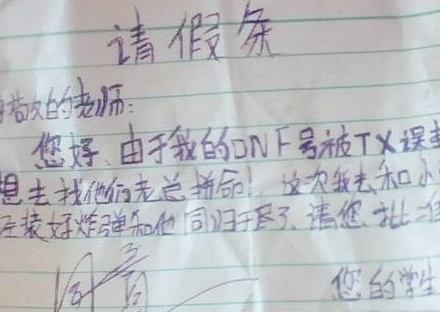 请假条
敬的老师:
您好,由于我的DNF号被TX误
想去找他们老总拼命!这次我去和小
装好炸弹和他同归于尽了、请您批
同意
您的学生